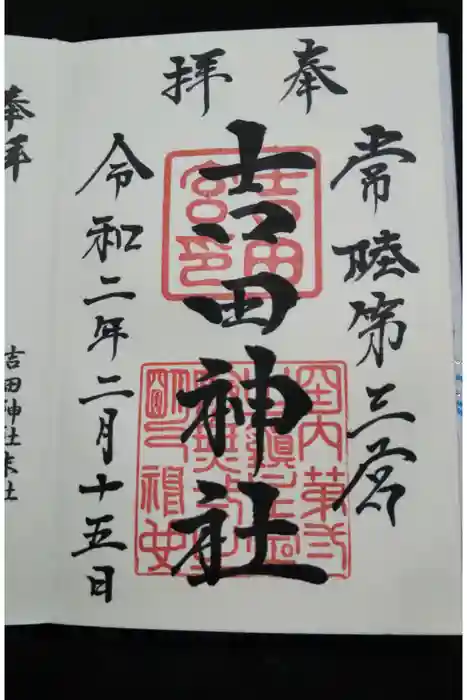 奉拝
常陸第三宮
吉田神社
令和二年二月十五日
奉拝
吉田神社末社